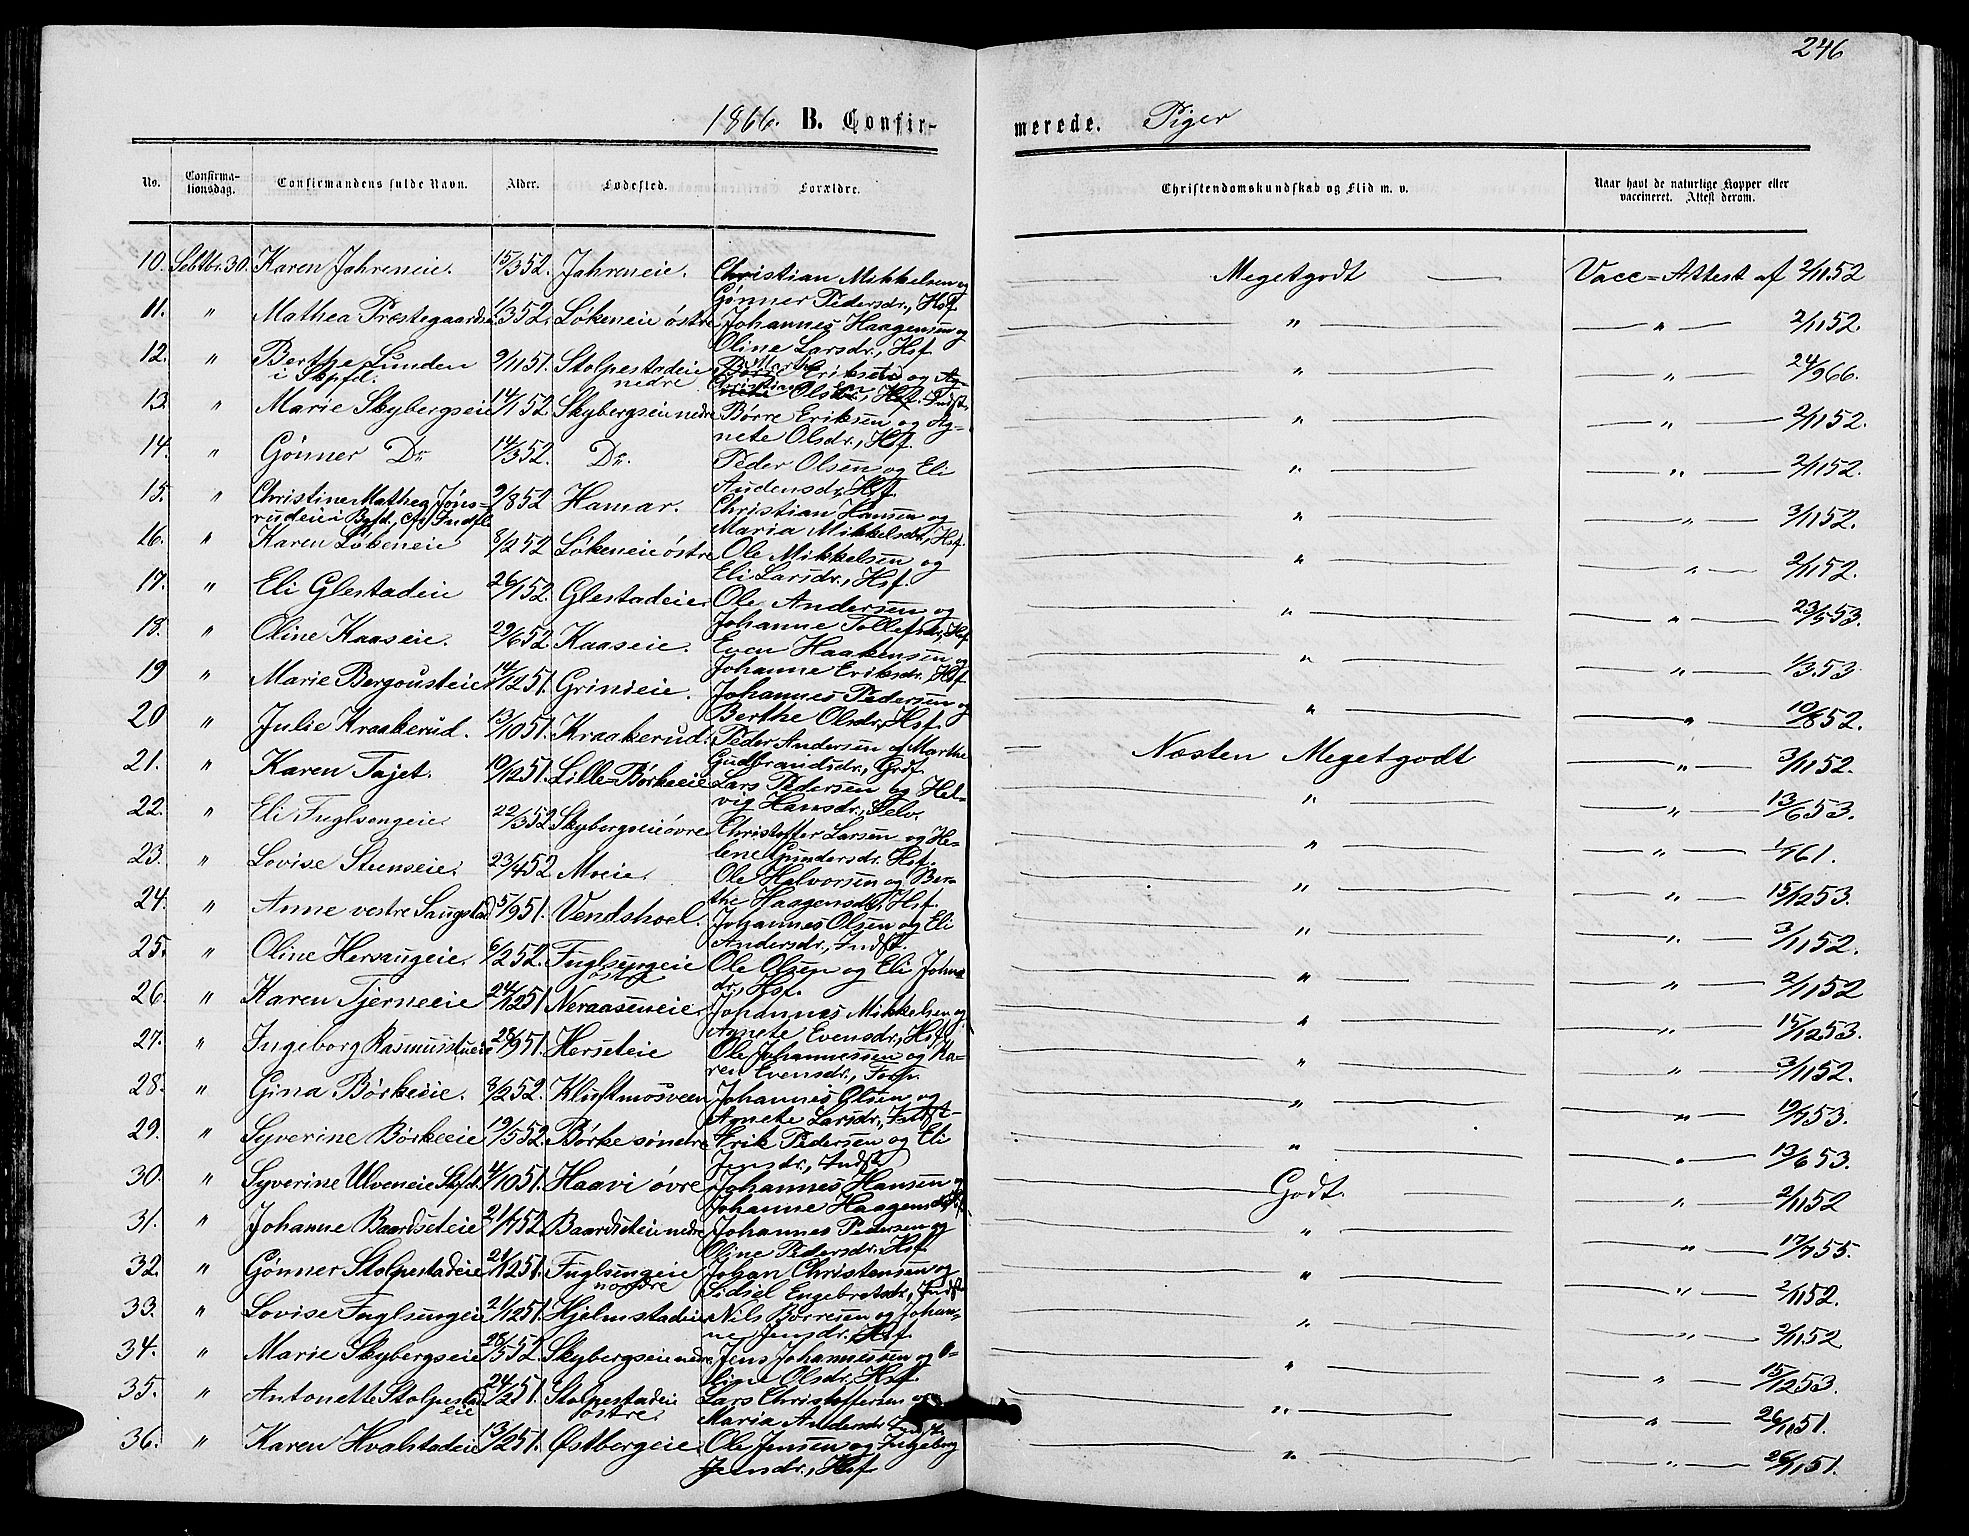 246
1866. B. Confir-
merede. Piger
No. Confirma-tionsdag. Confirmandens fulde Navn. Alder. Fødested. Forældre. Christendomskundskab og Flid m. v. Naar havt de naturlige Kopper eller vaccineret. Attest derom.
10. Sebtbr. 30. Karen Jahreneie. 15/3 52. Jahreneie. Christian Mikkelsen og Gønner Pedersdr., Hsf. Megetgodt Vacc=Attest af 2/11 52
11. " Mathea Præstegaardseie 1/3 52. Løkeneie østre Johannes Haagensen og Oline Larsdr., Hsf. " " 2/11 52.
12. " Berthe Lunden i Skpfd. 9/11 51. Stolpestadeie nedre " " 24/9 66.
13. " Marie Skybergseie 14/1 52. Skybergseie nedre Børre Eriksen og Agnete Olsdr., Hsf. " " 2/11 52.
14. " Gønner Do 14/3 52. Do. Peder Olsen og Eli Audensdr., Hsf. " " 2/11 52.
15. " Christine Mathea Jønsrudeie i Bgfd., 9/8 52 Hamar. Christian Hansen og Maria Mikkelsdr., Hsf. " " 3/11 52.
16. " Karen Løkeneie 8/2 52 Løkeneie østre Ole Mikkelsen og Eli Larsdr., Hsf. " " 2/11 52.
17. " Eli Glestadeie 26/1 52. Glestadeie. Ole Andersen og Johanne Tollefsdr., Hsf. " " 23/5 53.
18. " Oline Kaaseie. 29/6 52. Kaaseie. Even Haakensen og Johanne Eriksdr., Hsf. " " 1/3 53
19 " Marie Bergousteie 14/12 51. Grinieie. Johannes Pedersen og Berthe Olsdr., Hsf. " " 10/8 52.
20 " Julie Kraakerud. 13/10 51. Kraakerud. Peder Andersen og Marthe Gudbrandsdr., Grdf. Næsten Megetgodt " 3/11 52.
21. " Karen Tajet. 10/12 51. Lille=Børkeeie Lars Pedersen og Helvig Hansdr., Selv. " " 13/6 53.
22. " Eli Fuglsengeie. 22/3 52 Skybergseie øvre Christoffer Larsen og Helene Gundersdr. Hsf. " " 1/7 61.
23. " Lovise Stenseie. 23/4 52 Moeie. Ole Halvorsen og Berthe Haagensdr., Hsf. " " 15/12 53.
24. " Anne vestre Saugstad 5/9 51. Vendshoel. Johannes Olsen og Eli Andersdr., Indst. " " 3/11 52.
25. " Oline Hersaugeie. 6/2 52. Fuglsengeie østre Ole Olsen og Eli Johns dr., Hsf. " " 2/11 52
26. " Karen Tjerneeie 24/12 51. Neraaseneie. Johannes Mikkelsen og Agnete Evensdr., Hsf. " " 15/12 53.
27. " Ingeborg Rasmusstueie 28/9 51. Herseteie Ole Johannessen og Karen Evensdr., Forp. " " 3/11 52.
28. " Gina Børkeeie. 8/2 52. Kluftmosveen Johannes Olsen og Agnete Larsdr., Indst. " " 19/7 53.
29. " Syverine Børkeeie 19/5 52. Børke søndre Erik Pedersen og Eli Jensdr., Indst. " " 13/6 53.
30. " Syverine Ulveneie Skfd. 4/10 51. Haavi øvre Johannes Hansen og Johanne Haagensdr. Godt. " 2/11 52
31. " Johanne Baardseteie 21/7 52. Baardseteie nedre Johannes Pedersen og Oline Pedersdr., Hsf. " " 17/7 55.
32. " Gønner Stolpestadeie 21/12 51. Fuglsengeie nordre Johan Christensen og Sidsel Engebretsdr., Indst. " " 2/11 52.
33. " Lovise Fuglsengeie 21/12 51. Hjelmstadeie Nils Børresen og Johanne Jensdr., Hsf. " " 2/11 52
34. " Marie Skybergseie 28/5 52. Skybergseie nedre Jens Johannessen og Oline Olsdr., Hsf. " " 15/12 53.
35. " Antonette Stolpestadeie 24/2 51. Stolpestadeie østre. Lars Christoffersen og Maria Andersdr. Indst. " " 26/11 51.
36. " Karen Hvalstadeie 13/12 51. Østbergeie. Ole Jensen og Ingeborg Jensdr., Hsf. " " 26/11 51.